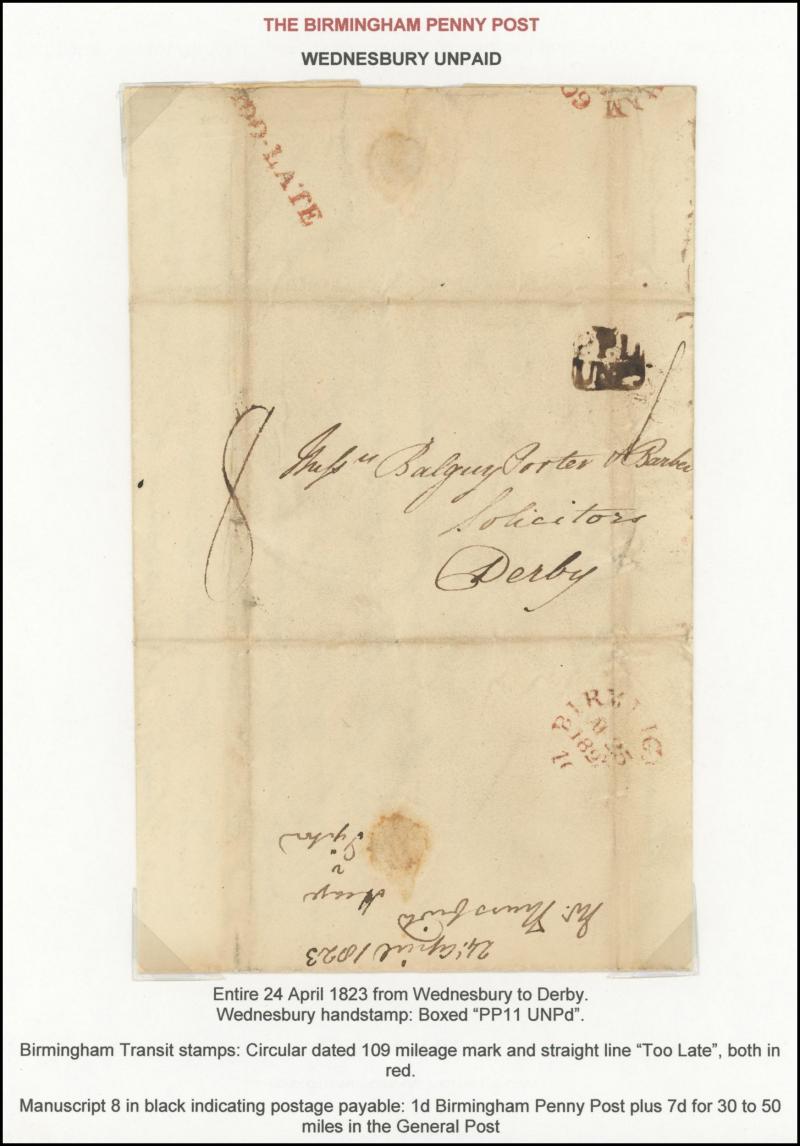 THE BIRMINGHAM PENNY POST
WEDNESBURY UNPAID
TOO-LATE
8
Messrs Balguy Porter & Barber
Solicitors
Derby
24 April 1823
Entire 24 April 1823 from Wednesbury to Derby.
Wednesbury handstamp: Boxed “PP11 UNPd”.
Birmingham Transit stamps: Circular dated 109 mileage mark and straight line “Too Late”, both in
red.
Manuscript 8 in black indicating postage payable: 1d Birmingham Penny Post plus 7d for 30 to 50
miles in the General Post